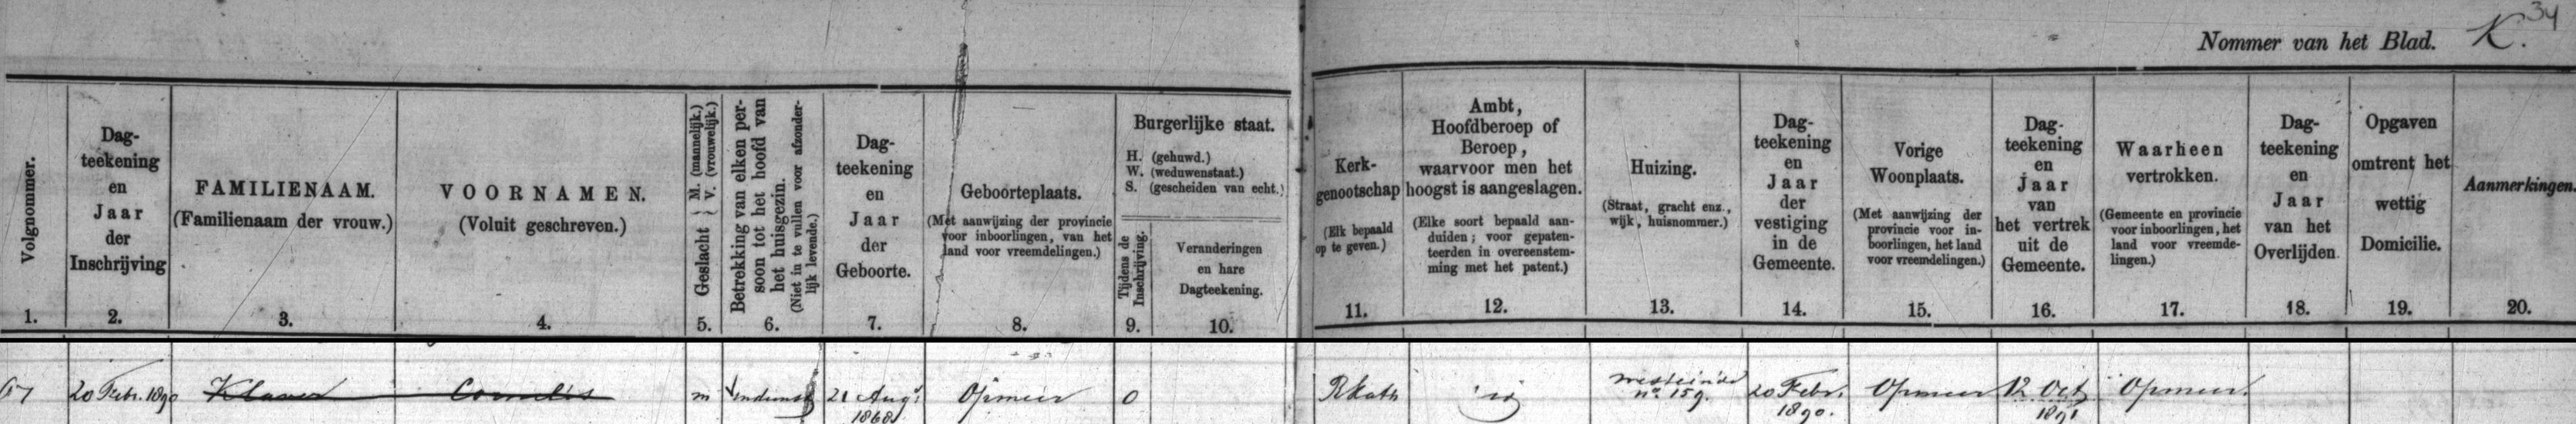 Nommer van het Blad. K. 34
Volgnommer.
1.
Dag-
teekening
en
Jaar
der
Inschrijving
2.
FAMILIENAAM.
(Familienaam der vrouw.)
3.
VOORNAMEN.
(Voluit geschreven.)
4.
Geslacht { M. (mannelijk.)
V. (vrouwelijk.)
5.
Betrekking van elken per-
soon tot het hoofd van
het huisgezin.
(Niet in te vullen voor afzonder-
lijk levende.)
6.
Dag-
teekening
en
Jaar
der
Geboorte.
7.
Geboorteplaats.
(Met aanwijzing der provincie
voor inboorlingen, van het
land voor vreemdelingen.)
8.
Burgerlijke staat.
H. (gehuwd.)
W. (weduwenstaat.)
S. (gescheiden van echt.)
Tijdens de
Inschrijving.
9.
Veranderingen
en hare
Dagteekening.
10.
Kerk-
genootschap
(Elk bepaald
op te geven.)
11.
Ambt,
Hoofdberoep of
Beroep,
waarvoor men het
hoogst is aangeslagen.
(Elke soort bepaald aan-
duiden; voor gepaten-
teerden in overeenstem-
ming met het patent.)
12.
Huizing.
(Straat, gracht enz.,
wijk, huisnommer.)
13.
Dag-
teekening
en
Jaar
der
vestiging
in de
Gemeente.
14.
Vorige
Woonplaats.
(Met aanwijzing der
provincie voor in-
boorlingen, het land
voor vreemdelingen.)
15.
Dag-
teekening
en
Jaar
van
het vertrek
uit de
Gemeente.
16.
Waarheen
vertrokken.
(Gemeente en provincie
voor inboorlingen, het
land voor vreemde-
lingen.)
17.
Dag-
teekening
en
Jaar
van het
Overlijden.
18.
Opgaven
omtrent het
wettig
Domicilie.
19.
Aanmerkingen.
20.
67
20 Febr. 1890
Klaver
Cornelis
m
21 Augs
1868
Opmeer
0
RKath
westeinde
no 159.
20 Febr.
1890.
Opmeer
12 Oct
1891
Opmeer.